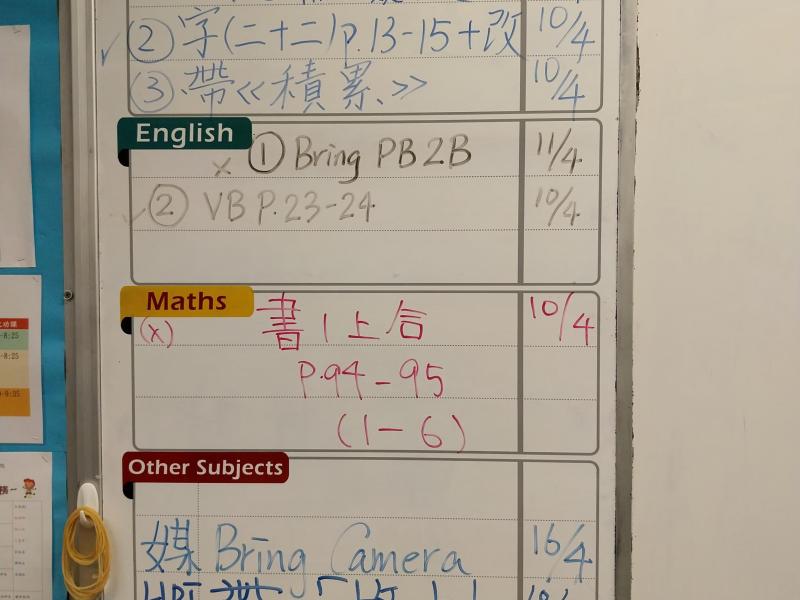 ② 字(二十二)p.13-15+改 10/4
③ 帶《積累》 10/4
English
x ① Bring PB2B 11/4
② VB P.23-24 10/4
Maths
(x) 書1上合 10/4
P.94-95
(1-6)
Other Subjects
媒 Bring Camera 16/4